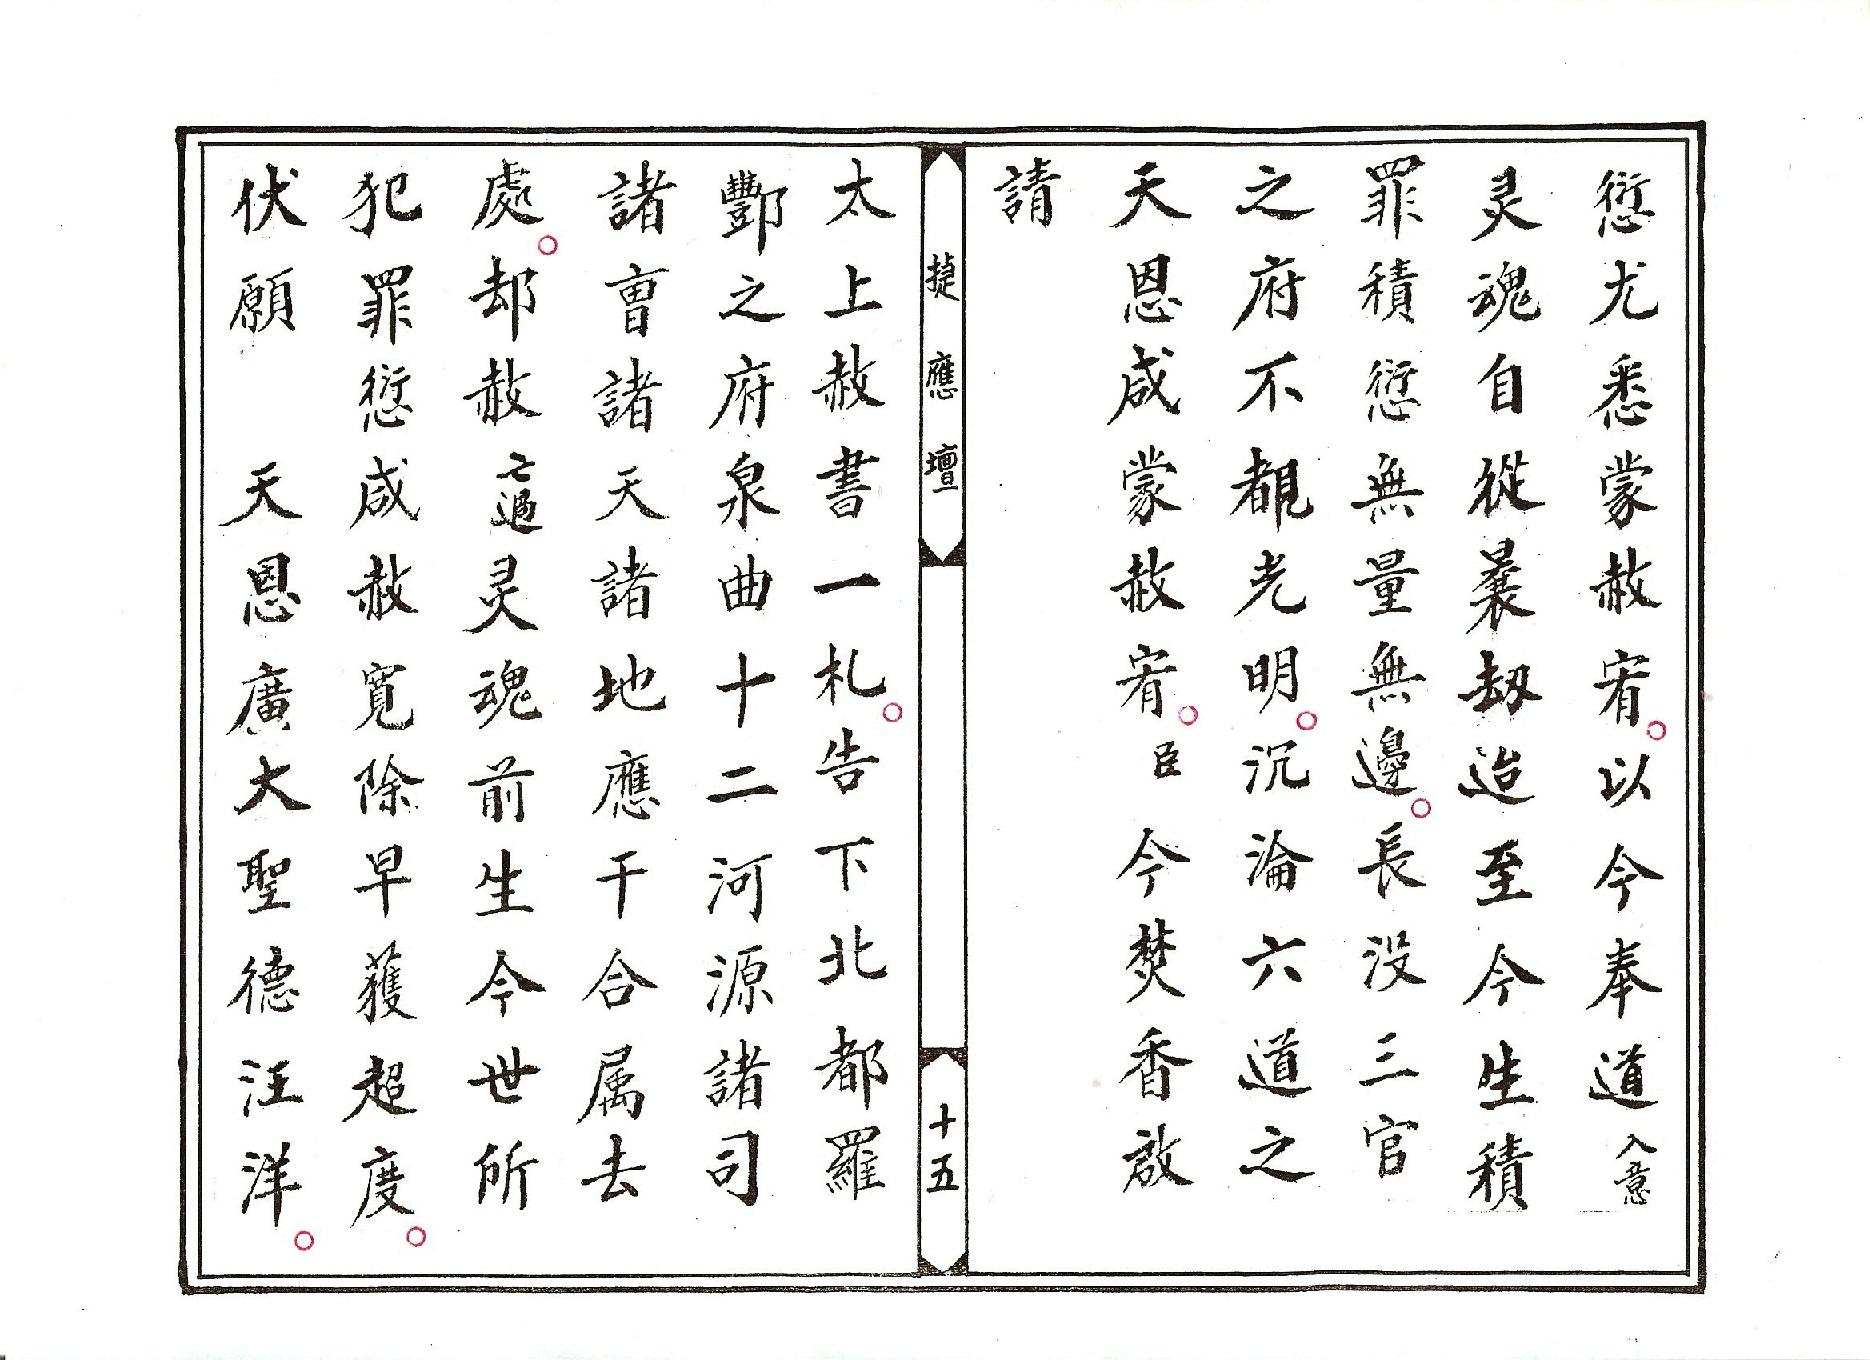 愆尤悉蒙赦宥。以今奉道入意
灵魂自從曩劫迨至今生積
罪積愆無量無邊。長没三官
之府不覩光明。沉淪六道之
天恩咸蒙赦宥。臣今焚香啟
請
捷應壇
十五
太上赦書一札。告下北都羅
酆之府泉曲十二河源諸司
諸曺諸天諸地應干合属去
處。却赦亡過灵魂前生今世所
犯罪愆咸赦寬除早獲超度。
伏願 天恩廣大聖德汪洋。